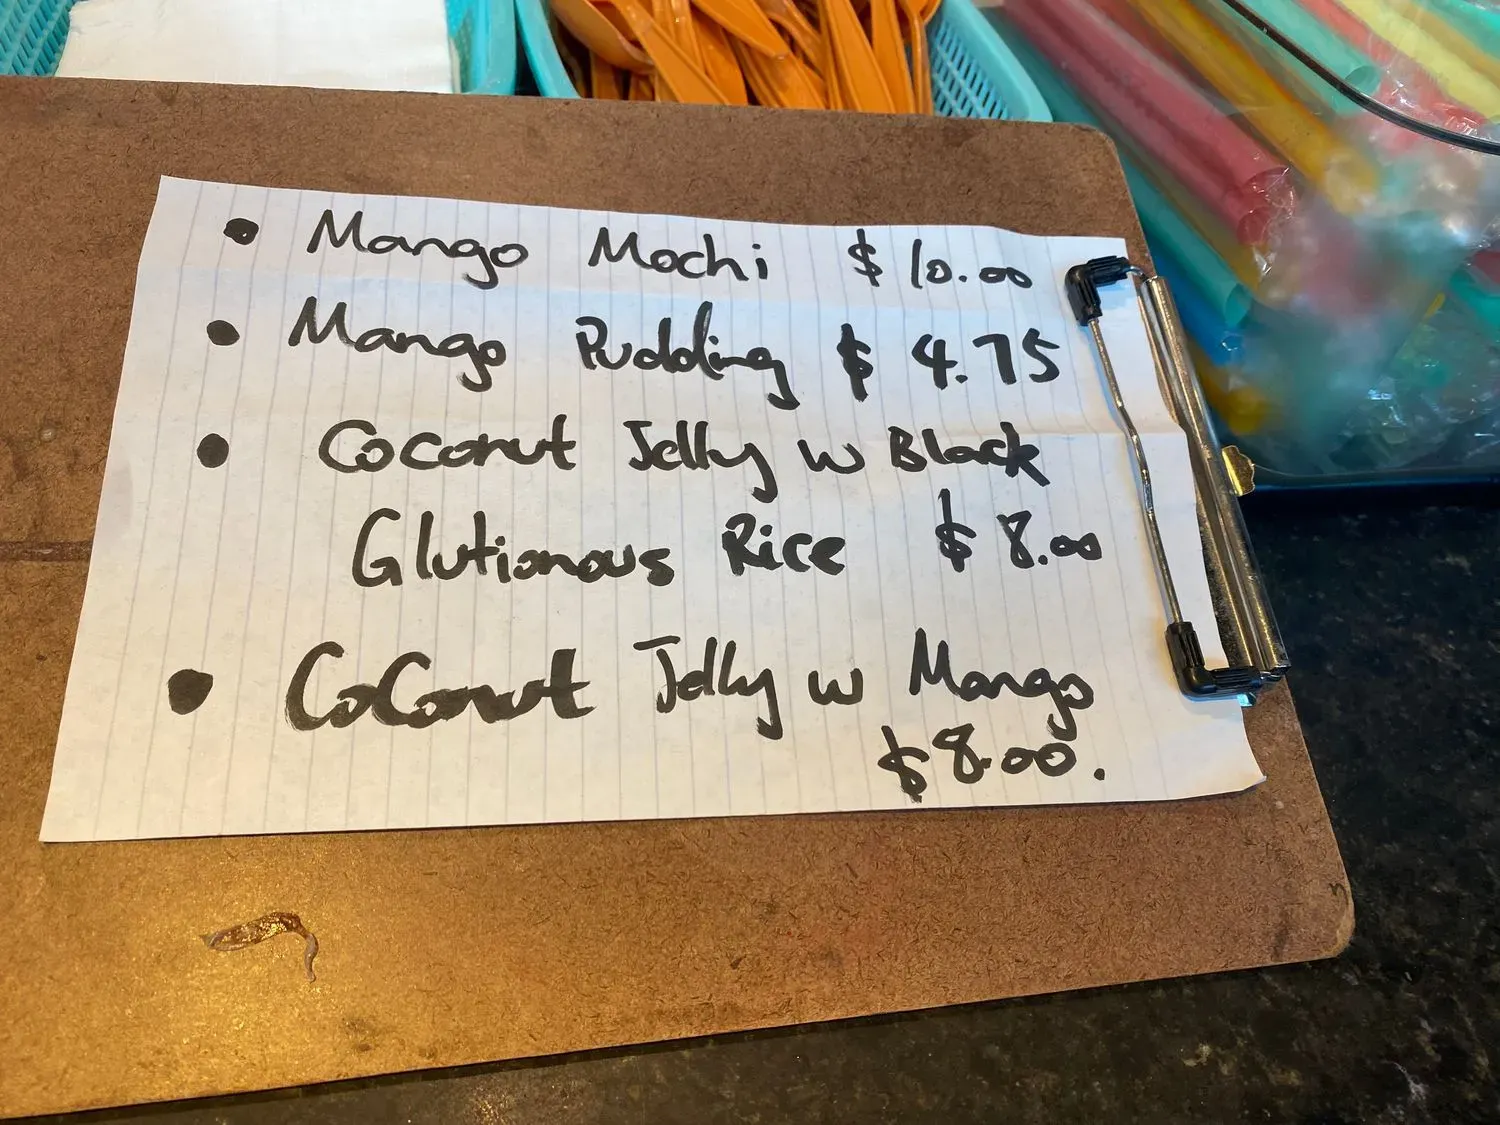 • Mango Mochi $ 10.00
• Mango Pudding $ 4.75
• Coconut Jelly w Black
Glutionous Rice $ 8.00
• Coconut Jelly w Mango
$8.00.